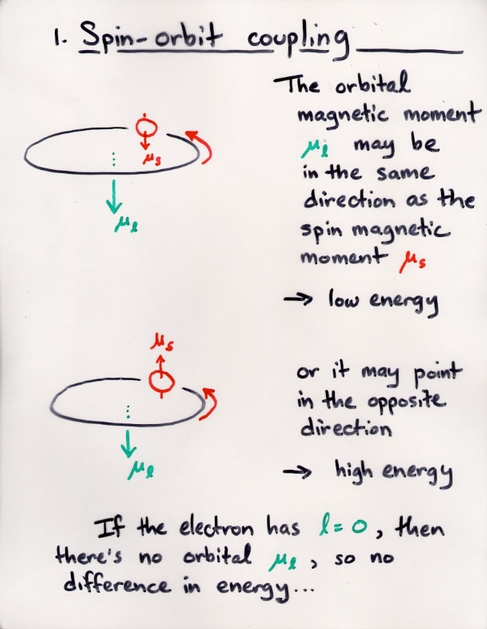 1. Spin-orbit coupling
The orbital
magnetic moment
μℓ may be
in the same
direction as the
spin magnetic
moment μs
→ low energy
μs
μℓ
or it may point
in the opposite
direction
→ high energy
μs
μℓ
If the electron has ℓ=0, then
there's no orbital μℓ, so no
difference in energy...